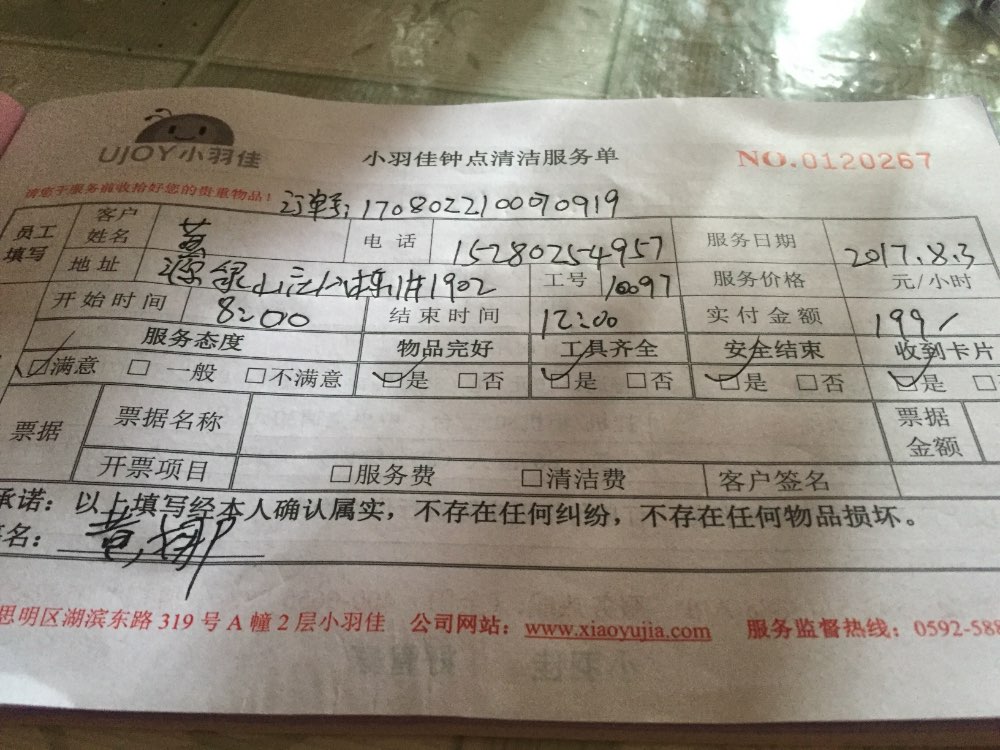 UJOY小羽佳 小羽佳钟点清洁服务单 NO.0120267
请您于服务前收拾好您的贵重物品! 订单号:1708022100070919
员工填写 客户姓名 黄 电话 15280254957 服务日期 2017.8.3
地址 1902 工号 10097 服务价格 元/小时
开始时间 8:00 结束时间 12:00 实付金额 199/
服务态度 物品完好 工具齐全 安全结束 收到卡片
☑满意 □一般 □不满意 ☑是 □否 ☑是 □否 ☑是 □否 ☑是 □
票据 票据名称 票据金额
开票项目 □服务费 □清洁费 客户签名
承诺:以上填写经本人确认属实,不存在任何纠纷,不存在任何物品损坏。
签名: 黄娜
思明区湖滨东路 319 号 A 幢 2 层小羽佳 公司网站:www.xiaoyujia.com 服务监督热线:0592-588